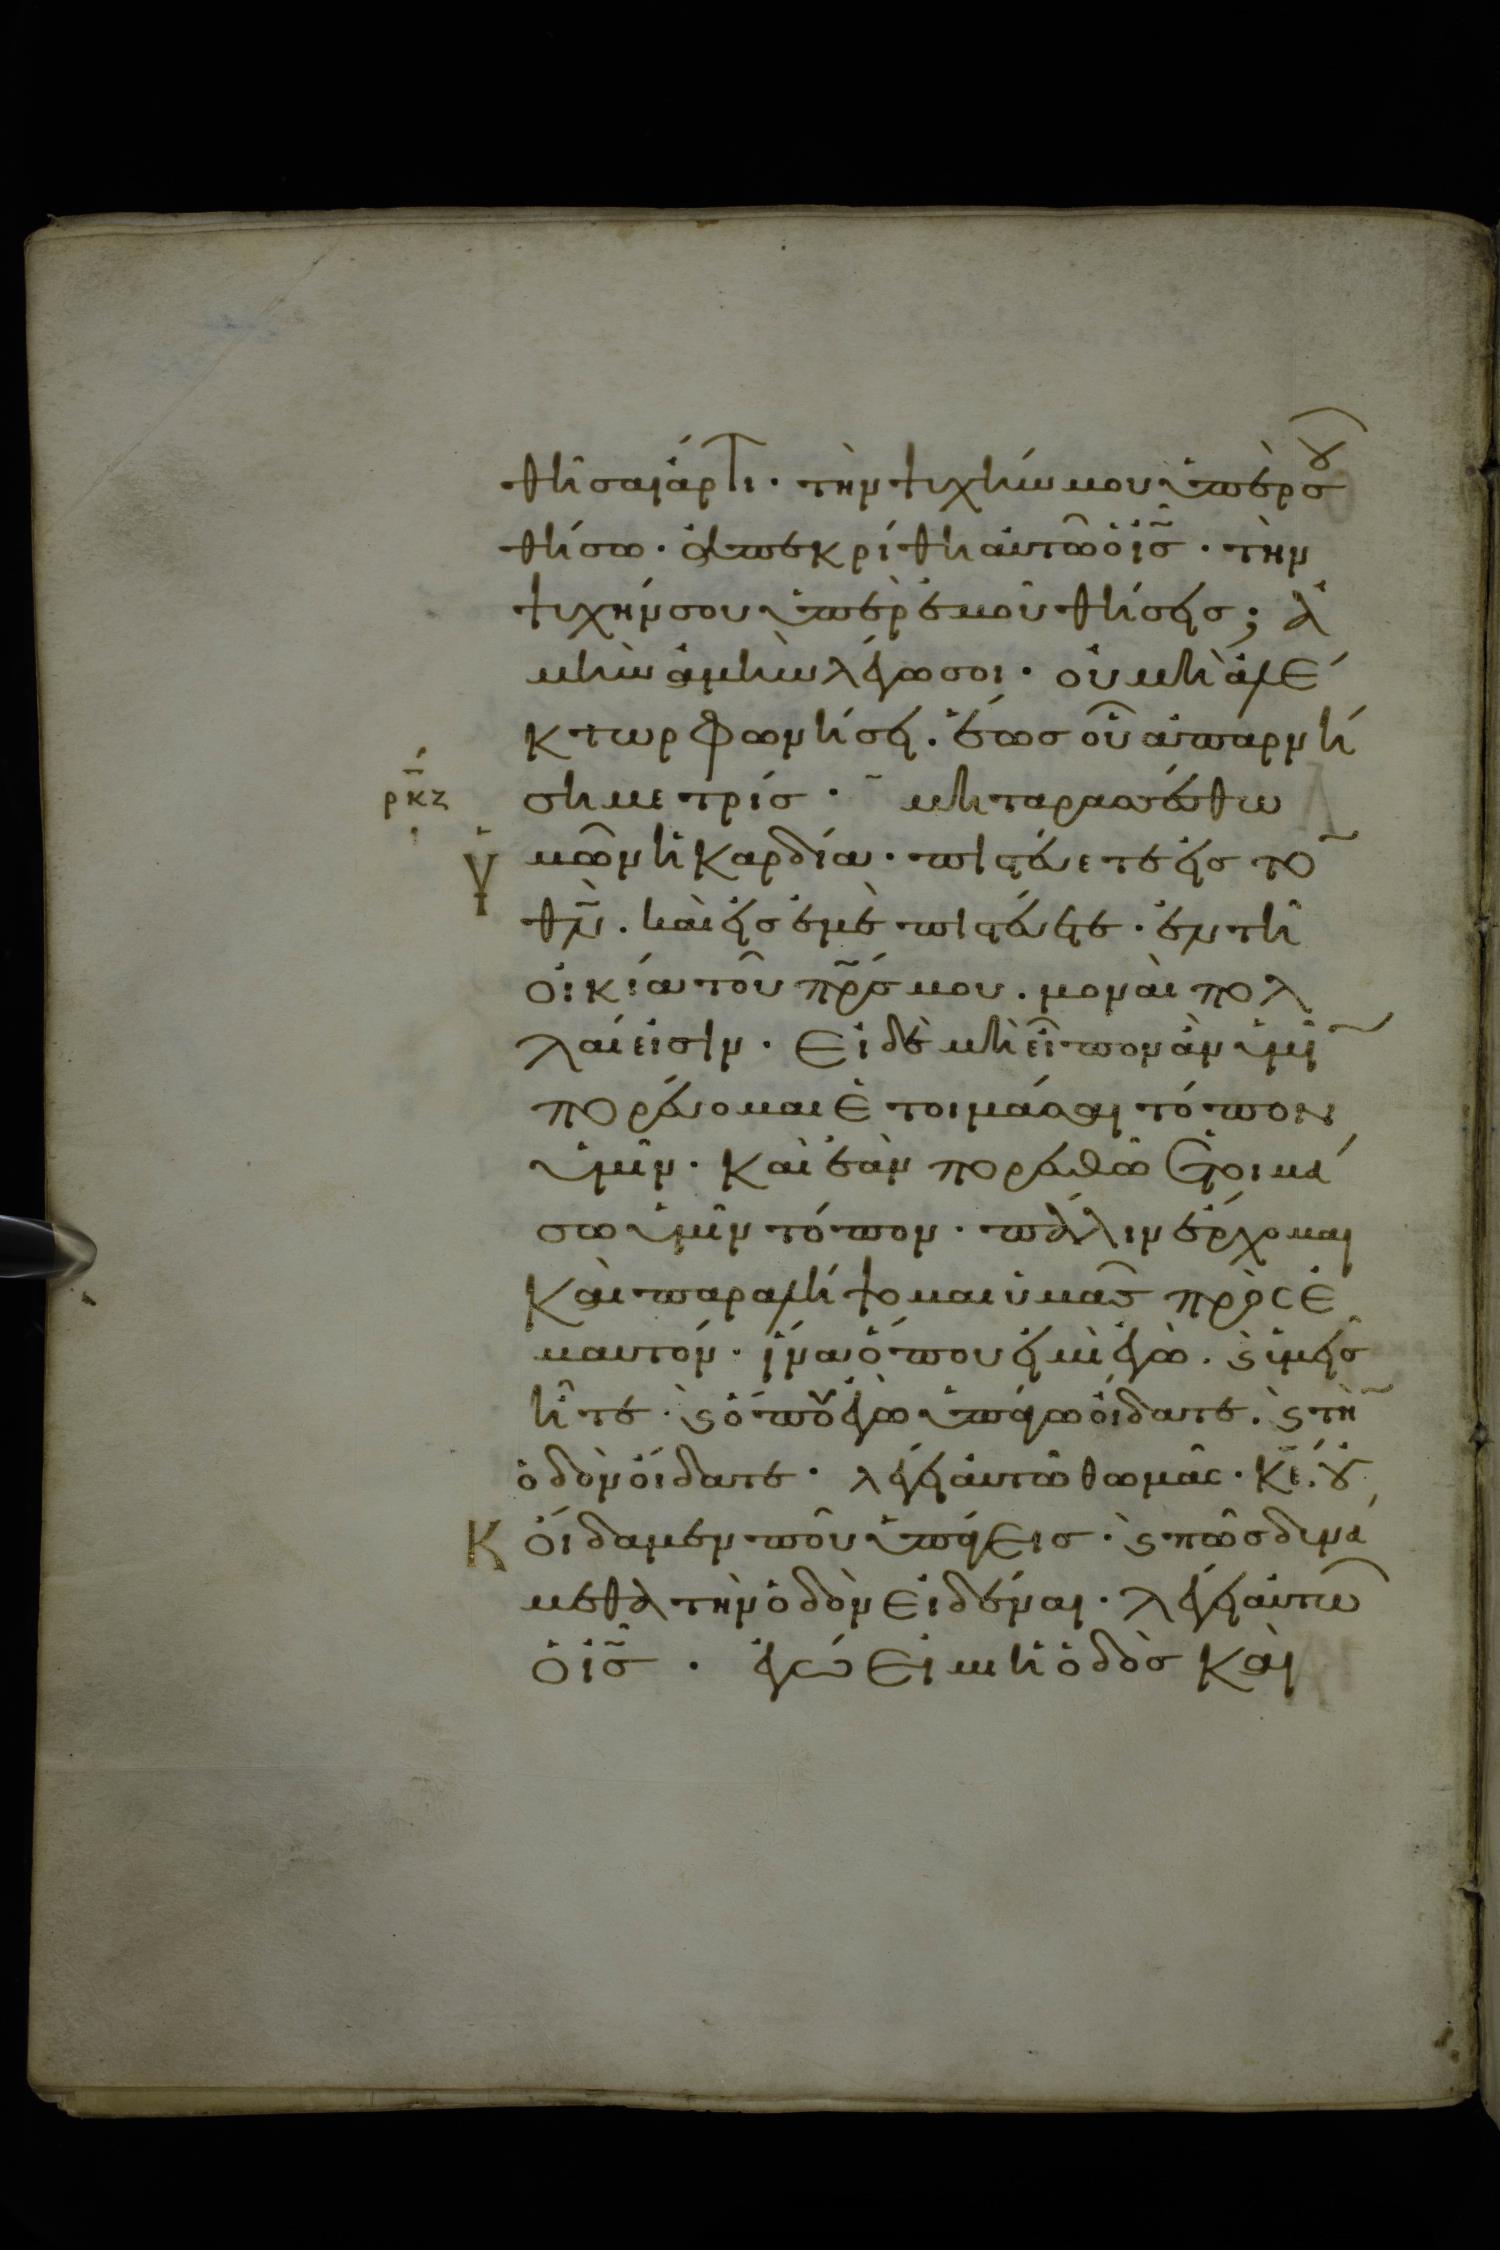 θῆσαι ἄρτι · τὴν ψυχήν μου ὑπὲρ σου
θήσω · ἀπεκρίθη αὐτῶ ὁ ις̅ · τὴν
ψυχήν σου ὑπὲρ ἐμοῦ θήσεις ; ἀ
μὴν ἀμὴν λέγω σοι · οὐ μὴ ἀλέ
κτωρ φωνήσει · ἕως οὗ ἀπαρνή
ση με τρίς · μὴ ταρασσέσθω
ρκζ
ι
ὑμῶν ἡ καρδία · πιστεύετε εἰς το
θν̅ · καὶ εἰς ἐμὲ πιστεύετε · ἐν τῆ
οἰκία τοῦ πρ̅ς μου · μοναὶ πολ
λαί εἰσιν · εἰ δὲ μὴ εἶπον ἂν ὑμῖ
πορεύομαι ἑτοιμάσαι τόπον
ὑμῖν · καὶ ἐὰν πορευθῶ ἑτοιμά
σω ὑμῖν τόπον · πάλιν ἔρχομαι
καὶ παραλήψομαι ὑμᾶς πρὸς ἐ
μαυτόν · ἵνα ὅπου εἰμὶ ἐγὼ · ϛ ὑμεῖς
ἦτε · ϛ ὅπου ἐγὼ ὑπάγω οἴδατε · ϛ τὴ
ὁδὸν οἴδατε · λέγει αὐτῶ θωμᾶς · κε̅ · οὐ
Κ οἴδαμεν ποῦ ὑπάγεις · ϛ πῶς δυνά
μεθα τὴν ὁδὸν εἰδέναι · λέγει αὐτῶ
ὁ ις̅ · ἐγώ εἰμι ἡ ὁδὸς καὶ